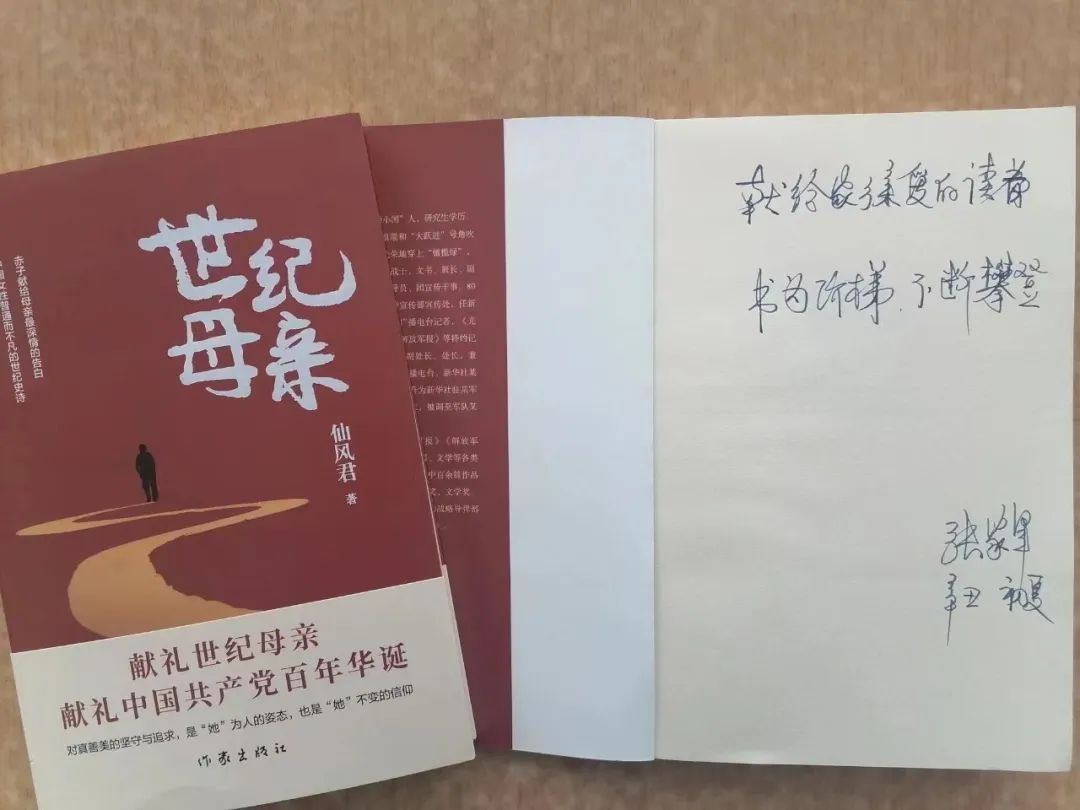 世纪
母亲
仙风君 著
赤子献给母亲最深情的告白
国女性普通而不凡的世纪史诗
献礼世纪母亲
献礼中国共产党百年华诞
对真善美的坚守与追求,是“她”为人的姿态,也是“她”不变的信仰
作家出版社
人,研究生学历
和“大跃进”号角吹
荣地穿上“橄榄绿”,
战士、文书、班长、副
导员、团宣传干事,80
宣传部宣传处,任新
播电台记者、《光
解放军报》等特约记
副处长、处长,兼
播电台、新华社某
升为新华社驻某军
,被调至军队某
报》《解放军
、文学等各类
中百余篇作品
奖、文学奖
战略导弹部
献给 的读者
书为阶梯,不断攀登
张家
辛丑 初夏